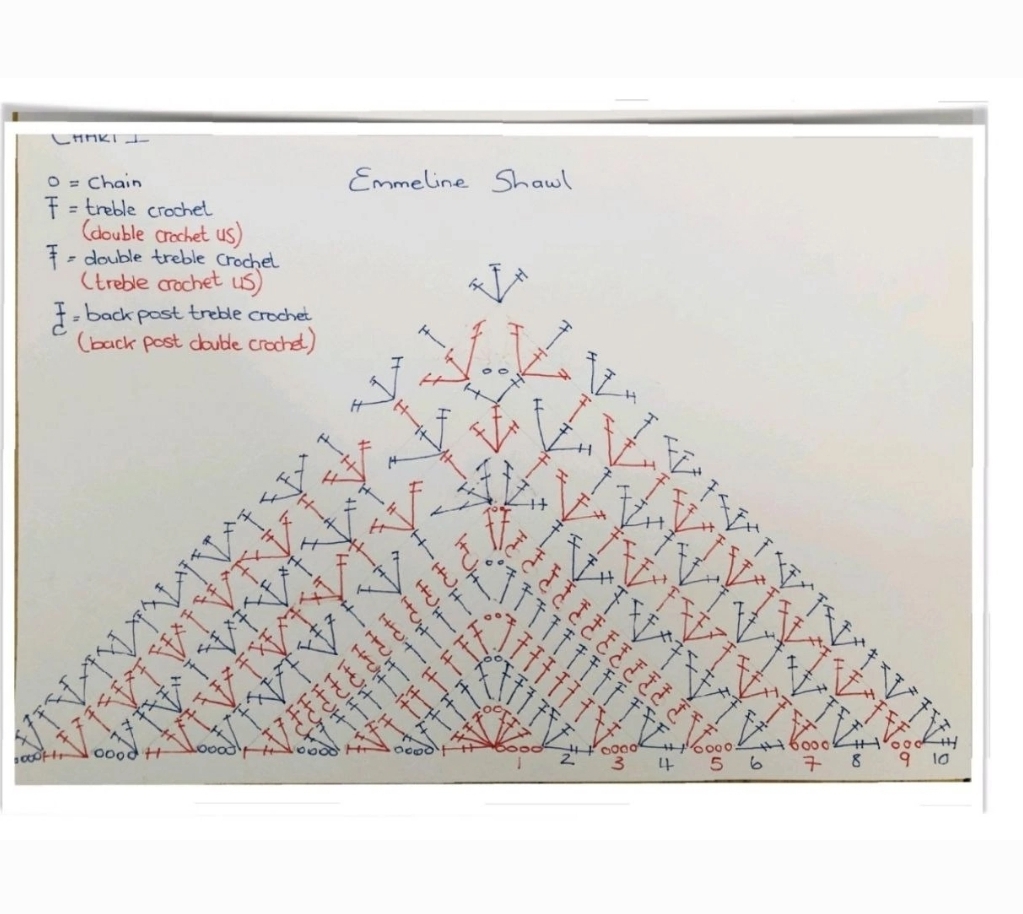 CHART 1
Emmeline Shawl
o = Chain
= treble crochet
(double crochet US)
= double treble crochet
(treble crochet US)
= back post treble crochet
(back post double crochet)
1 2 3 4 5 6 7 8 9 10